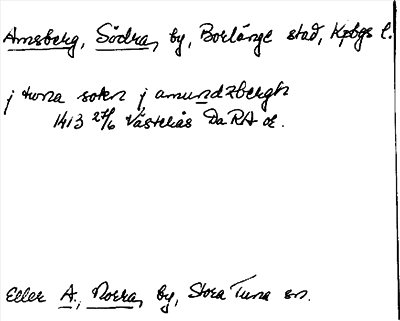 Amsberg, Södra, by, Borlänge stad, Kpbgs l.
j tuna sokn j amundzbergh
1413 27/6 Västerås Da RA or.
Eller A., Norra, by, Stora Tuna sn.